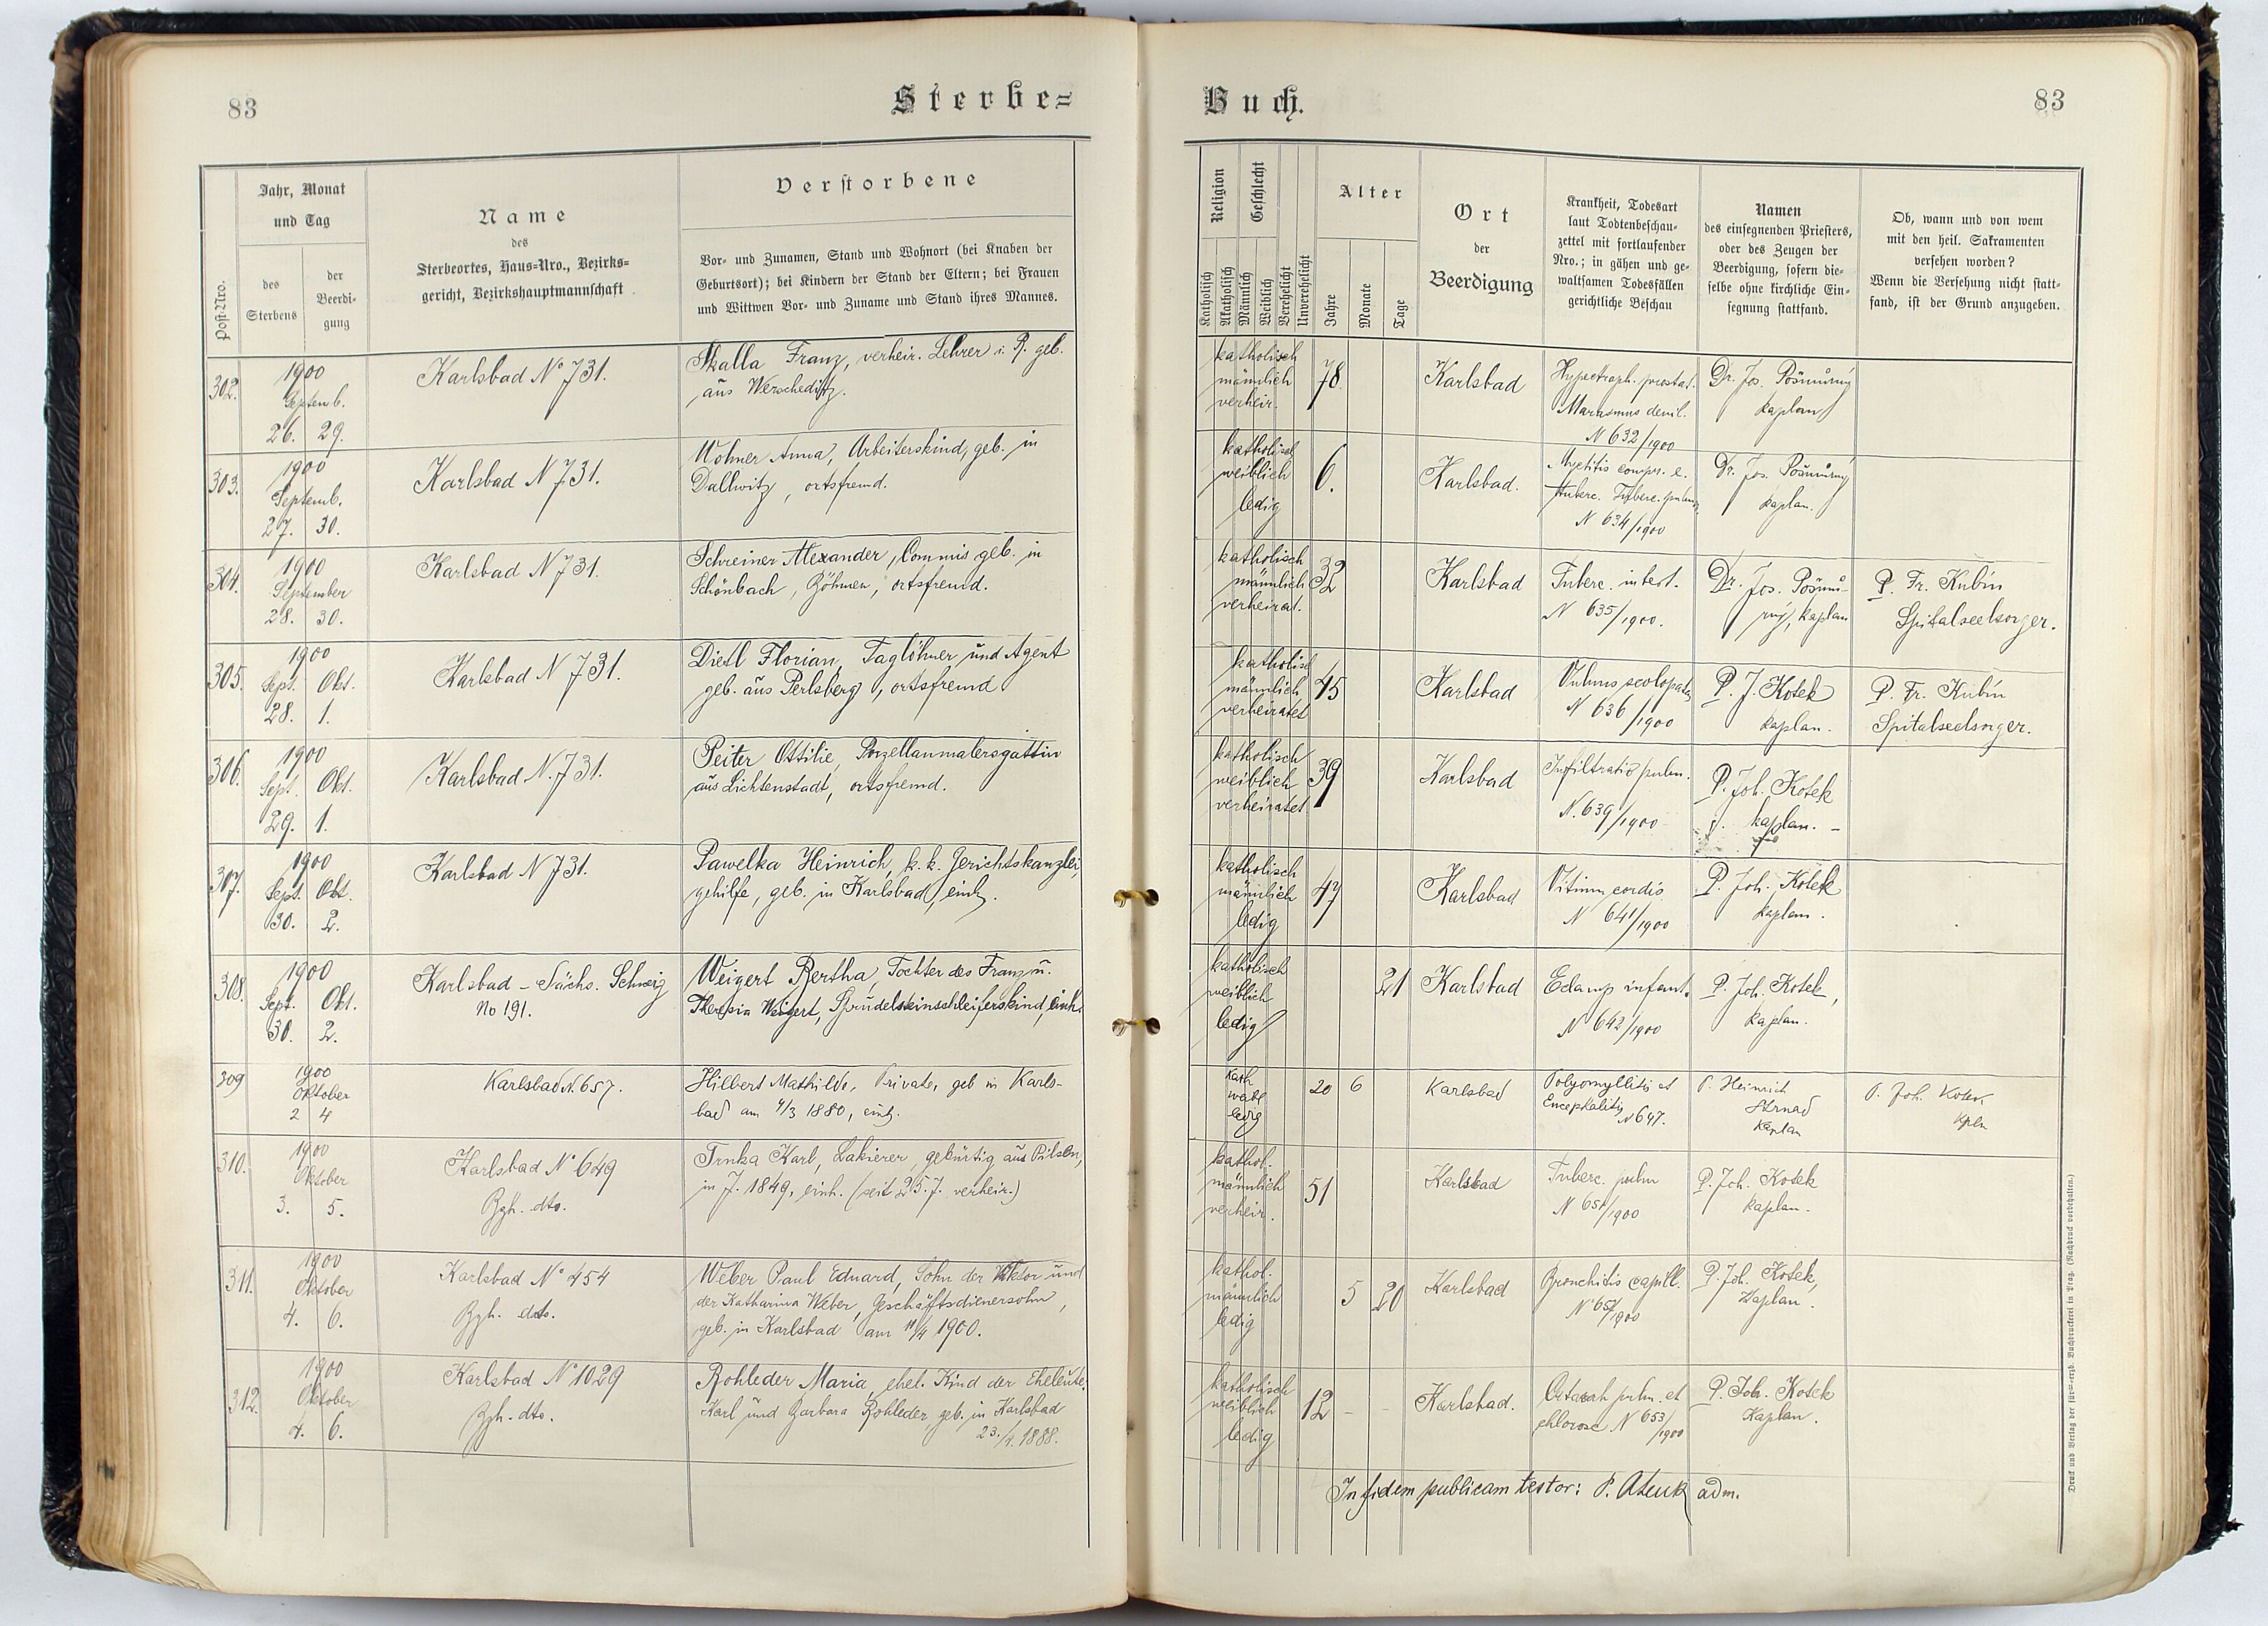 83
Sterbe=
Post-Nro.
Jahr, Monat
und Tag
des
Sterbens
der
Beerdi-
gung
Name
des
Sterbeortes, Haus-Nro., Bezirks=
gericht, Bezirkshauptmannschaft
Verstorbene
Vor- und Zunamen, Stand und Wohnort (bei Knaben der
Geburtsort); bei Kindern der Stand der Eltern; bei Frauen
und Wittwen Vor- und Zuname und Stand ihres Mannes.
302.
1900
Septemb.
26. 29.
Karlsbad No 731.
Skalla Franz, verheir. Lehrer i. P. geb.
aus Werscheditz.
303.
1900
Septemb.
27. 30.
Karlsbad N 731.
Wohner Anna, Arbeiterskind, geb. in
Dallwitz, ortsfremd.
304.
1900
September
28. 30.
Karlsbad N 731.
Schreiner Alexander, Commis geb. in
Schönbach, Böhmen, ortsfremd.
305.
1900
Sept. Okt.
28. 1.
Karlsbad N 731.
Dietl Florian, Taglöhner und Agent
geb. aus Perlsberg, ortsfremd
306.
1900
Sept. Okt.
29. 1.
Karlsbad N. 731.
Peiter Ottilie, Porzellanmalersgattin
aus Lichtenstadt, ortsfremd.
307.
1900
Sept. Okt.
30. 2.
Karlsbad N 731.
Pawelka Heinrich, k. k. Gerichtskanzlei,
gehilfe, geb. in Karlsbad, einh.
308.
1900
Sept. Okt.
30. 2.
Karlsbad - Sächs. Schweiz
No 191.
Weigert Bertha, Tochter des Franz u.
Theresia Weigert, Sprudelsteinschleiferskind, einh.
309
1900
Oktober
2 4
Karlsbad N. 657.
Hilbert Mathilde, Private, geb in Karls-
bad am 4/3 1880, einh.
310.
1900
Oktober
3. 5.
Karlsbad No 649
Bgh. dto.
Trnka Karl, Lakierer, gebürtig aus Pilsen,
in J. 1849, einh. (seit 25. J. verheir.)
311.
1900
Oktober
4. 6.
Karlsbad No 454
Bgh. dto.
Weber Paul Eduard, Sohn der Viktor und
der Katharina Weber, Geschäftsdienersohn,
geb. in Karlsbad am 11/4 1900.
312.
1900
Oktober
4. 6.
Karlsbad No 1029
Bgh. dto.
Rohleder Maria, ehel. Kind der Eheleute,
Karl und Barbara Rohleder, geb. in Karlsbad
23./4. 1888.
Buch.
83
Religion
Katholisch
Akatholisch
Geschlecht
Männlich
Weiblich
Verehelicht
Unverehelicht
Alter
Jahre
Monate
Tage
Ort
der
Beerdigung
Krankheit, Todesart
laut Todtenbeschau-
zettel mit fortlaufender
Nro.; in gähen und ge-
waltsamen Todesfällen
gerichtliche Beschau
Namen
des einsegnenden Priesters,
oder des Zeugen der
Beerdigung, sofern die-
selbe ohne kirchliche Ein-
segnung stattfand.
Ob, wann und von wem
mit den heil. Sakramenten
versehen worden?
Wenn die Versehung nicht statt-
fand, ist der Grund anzugeben.
katholisch
männlich
verheir.
78
Karlsbad
Hypertroph. prostat.
Marasmus
N 632/1900
Dr. Jos. Pošmůrný
kaplan
katholisch
weiblich
ledig
6.
Karlsbad.
Myelitis compr. e.
tuberc. Tuberc. pulm.
N 634/1900
Dr. Jos. Pošmůrný
kaplan.
katholisch
männlich
verheirat.
32
Karlsbad
Tuberc. intest.
N 635/1900.
Dr. Jos. Pošmů-
rný, kaplan
P. Fr. Kubín
Spitalseelsorger.
katholisch
männlich
verheiratet
45
Karlsbad
Vulnus
N 636/1900
P. J. Kotek
kaplan.
P. Fr. Kubín
Spitalseelsorger.
katholisch
weiblich
verheiratet
39
Karlsbad
Infiltratio pulm.
N. 639/1900
P. Joh. Kotek
kaplan.
katholisch
männlich
ledig
47
Karlsbad
Vitium cordis
N 641/1900
P. Joh. Kotek
kaplan.
katholisch
weiblich
ledig
21
Karlsbad
Eclamp infant.
N 642/1900
P. Joh. Kotek,
kaplan.
kath
weibl
ledig
20 6
Karlsbad
Polyomyllitis et
Encephalitis
N 647.
P. Heinrich
Strnad
Kaplan
P. Joh. Kotek
kpln
kathol.
männlich
verheir.
51
Karlsbad
Tuberc. pulm
N 651/1900
P. Joh. Kotek
kaplan.
kathol.
männlich
ledig
5 20
Karlsbad
Bronchitis capill.
P. Joh. Kotek,
Kaplan.
katholisch
weiblich
ledig
12 - -
Karlsbad.
Catarrh pulm. et
chlorose N 653/1900
P. Joh. Kotek
Kaplan.
In fidem publicam testor: P. adm.
Druck und Verlag der fürst-erzb. Buchdruckerei in Prag. (Nachdruck vorbehalten.)